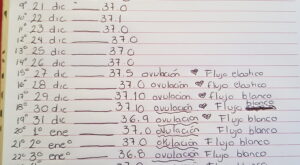 9° 21 dic ___ 37.0
10° 22 dic ___ 37.1
11° 23 dic ___ 37.0
12° 24 dic ___ 37.0
13° 25 dic ___ 37.0
14° 26 dic ___ 37.0
15° 27 dic ___ 37.5 ovulación ♥ Flujo elastico
16° 28 dic ___ 37.0 ovulación ♥ Flujo elastico
17° 29 dic ___ 37.10 ovulación ♥ Flujo blanco
18° 30 dic ___ 37.10 ovulación ♥ Flujo blanco
19° 31 dic ___ 36.9 ovulación ♥ Flujo blanco
20° 1° ene ___ 37.0 ovulación Flujo blanco
21° 2° ene ___ 37.0 ovulación Flujo blanco
22° 3° ene ___ 36.8 ovulación Flujo blanco